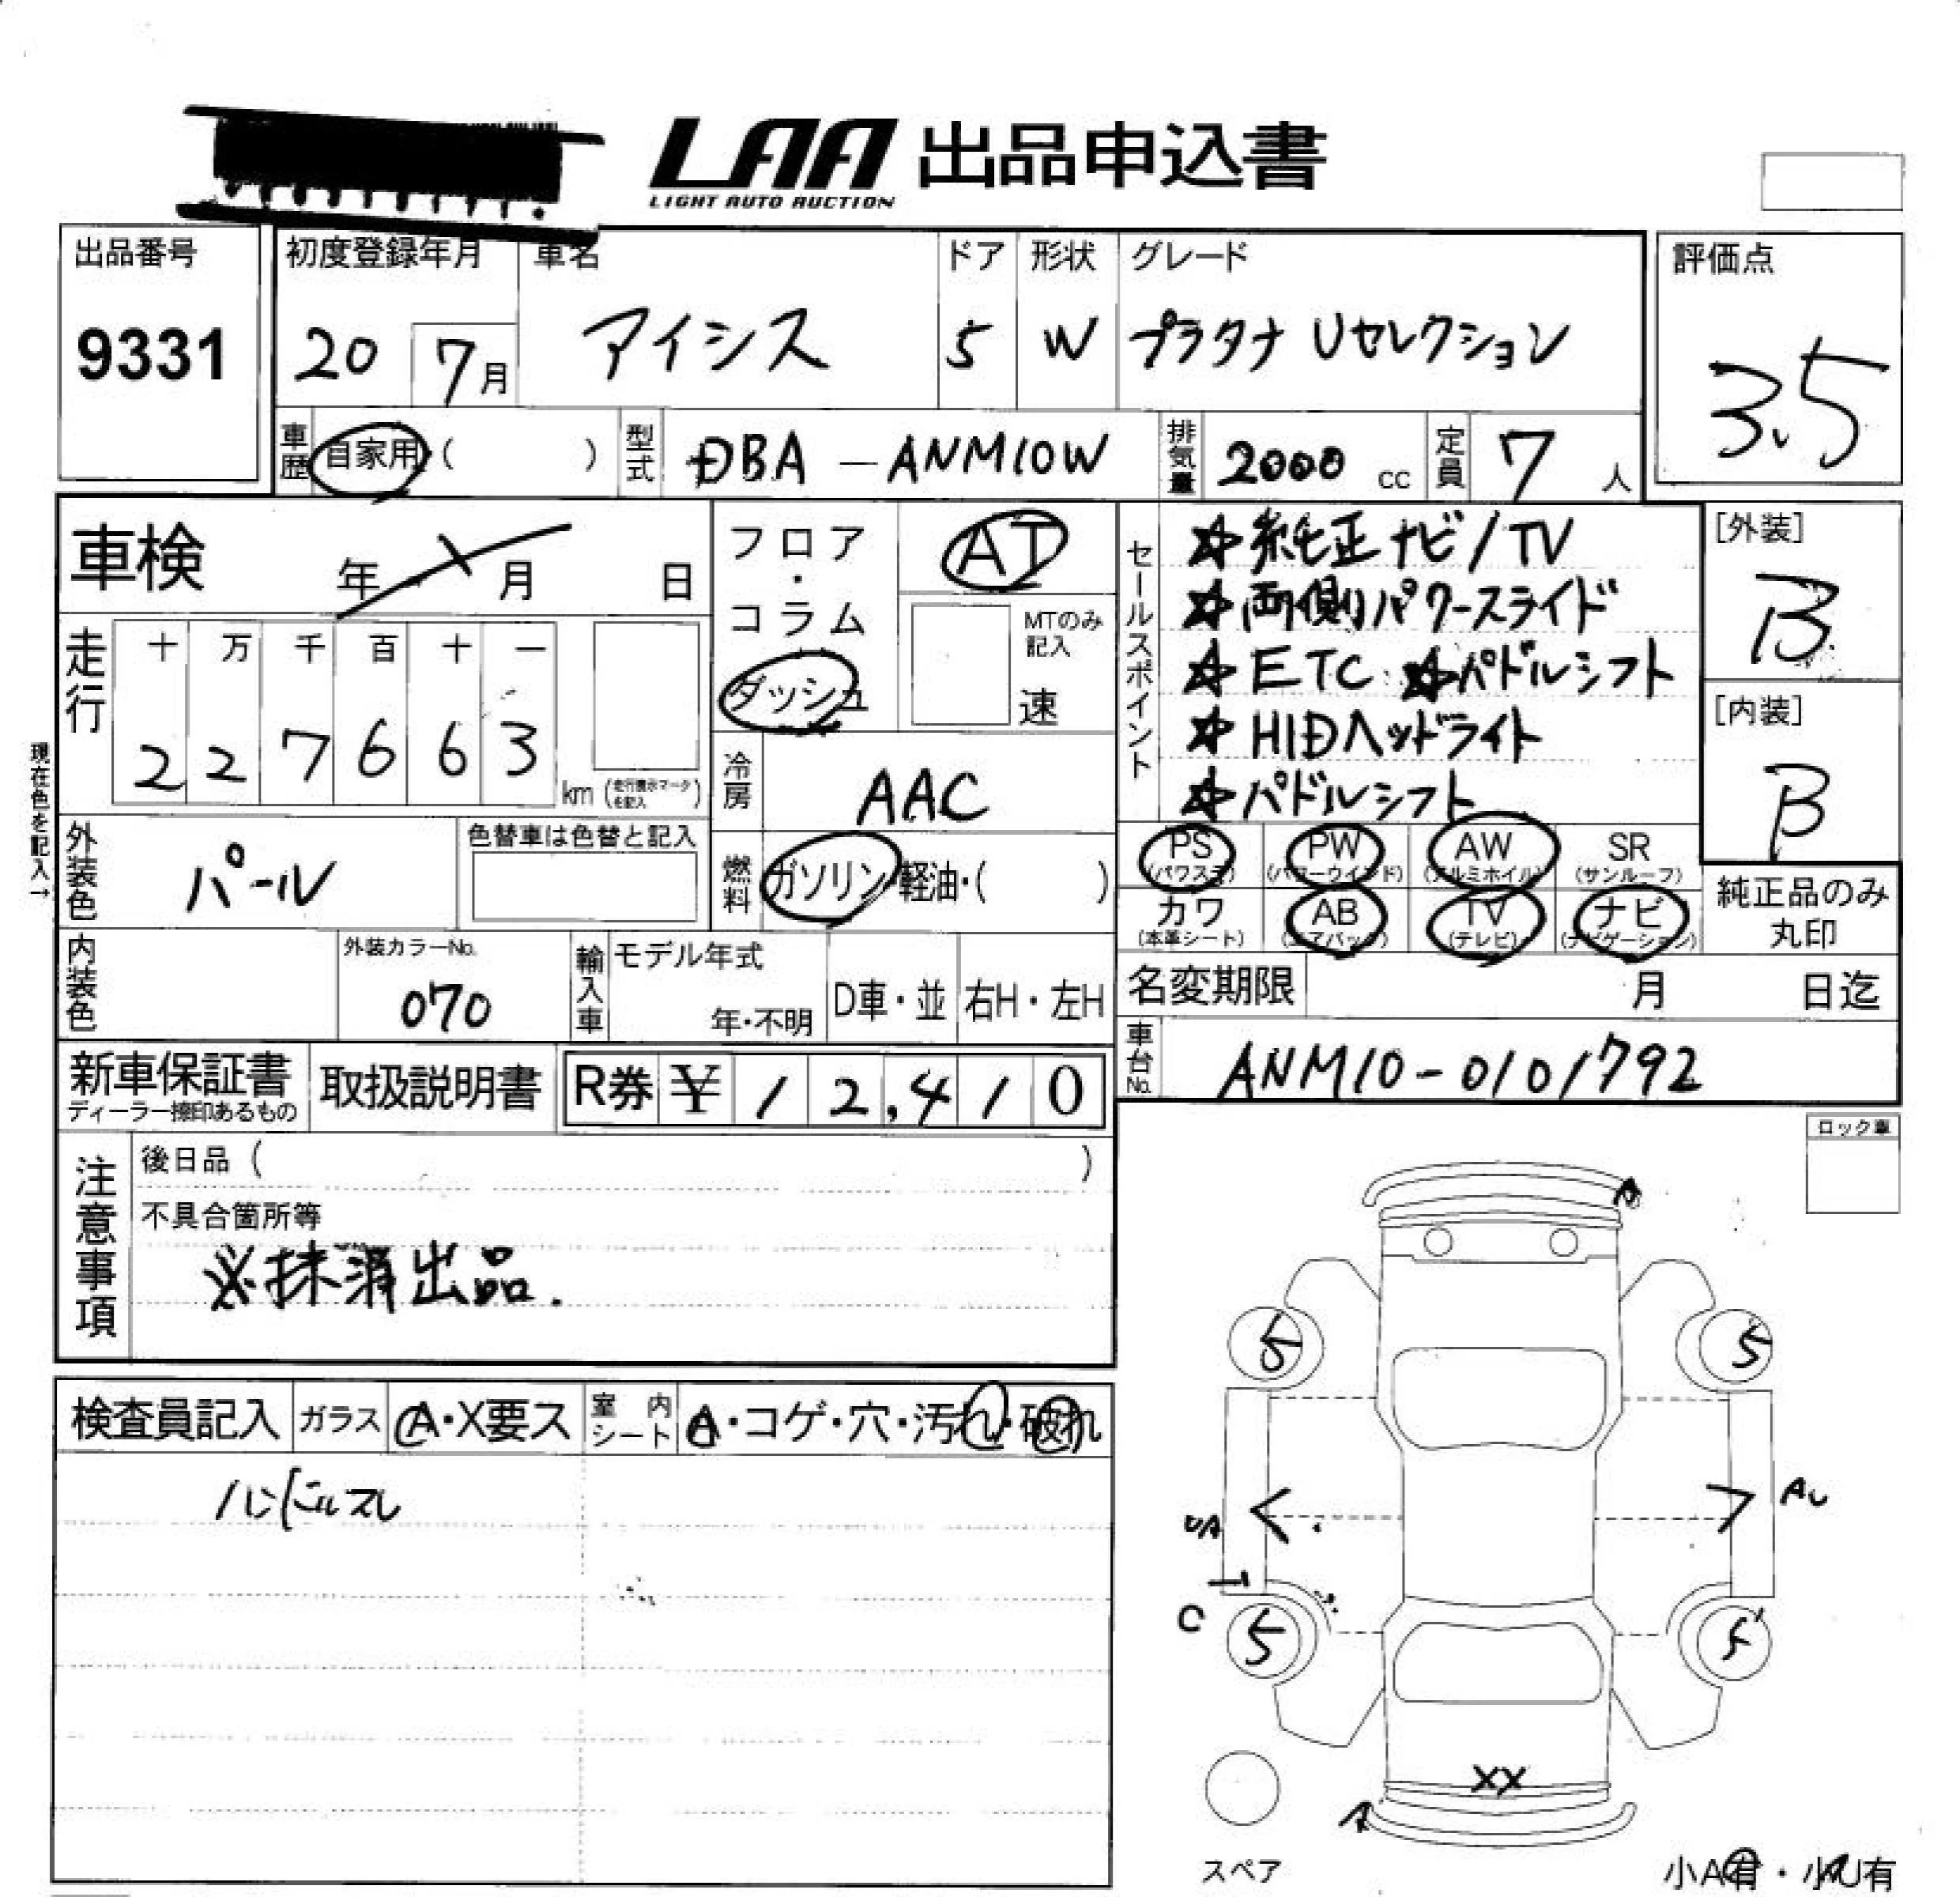 LAA 出品申込書
LIGHT AUTO AUCTION
出品番号
9331
初度登録年月
20 7月
車名
アイシス
ドア
5
形状
W
グレード
プラタナ Uセレクション
評価点
3.5
車歴 自家用・( )
型式 DBA-ANM10W
排気量 2000 cc
定員 7 人
車検 年 月 日
走行
十 万 千 百 十 一
2 2 7 6 6 3
km (走行表示マークを記入)
現在色を記入→
フロア・コラム
ダッシュ
AT
MTのみ記入
速
冷房 AAC
セールスポイント
☆純正ナビ/TV
☆両側パワースライド
☆ETC ☆パドルシフト
☆HIDヘッドライト
☆パドルシフト
[外装]
B
[内装]
B
外装色 パール
色替車は色替と記入
燃料 ガソリン・軽油・( )
PS (パワステ)
PW (パワーウインド)
AW (アルミホイル)
SR (サンルーフ)
カワ (本革シート)
AB (エアバック)
TV (テレビ)
ナビ (ナビゲーション)
純正品のみ丸印
内装色
外装カラーNo.
070
輸入車
モデル年式
年・不明
D車・並
右H・左H
名変期限 月 日迄
車台No. ANM10-0101792
新車保証書
ディーラー捺印あるもの
取扱説明書
R券 ¥ 12,410
注意事項
後日品 ( )
不具合箇所等
※抹消出品.
ロック車
検査員記入
ガラス A・X要ス
室内シート A・コゲ・穴・汚れ・破れ
ハンドルスレ
A
5
5
UA
AU
C
5
5
XX
A
スペア
小A有・小U有